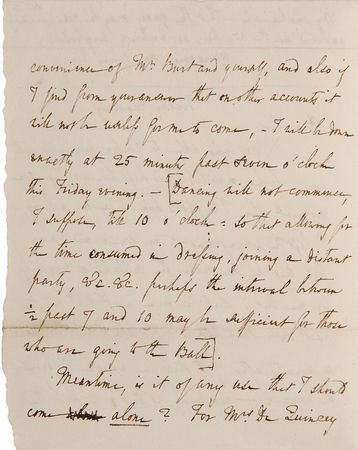 convenience of Mr. Burt and yourself, and also if
I find from your answer that on other accounts it
will not be useless for me to come, – I will be down
exactly at 25 minutes past seven o'clock
this Friday evening. – [Dancing will not commence,
I suppose, till 10 o'clock: so that allowing for
the time consumed in dressing, joining a distant
party, &c. &c. perhaps the interval between
½ past 7 and 10 may be sufficient for those
who are going to the Ball].
Meantime, is it of any use that I should
come alone alone? For Mrs. De Quincey